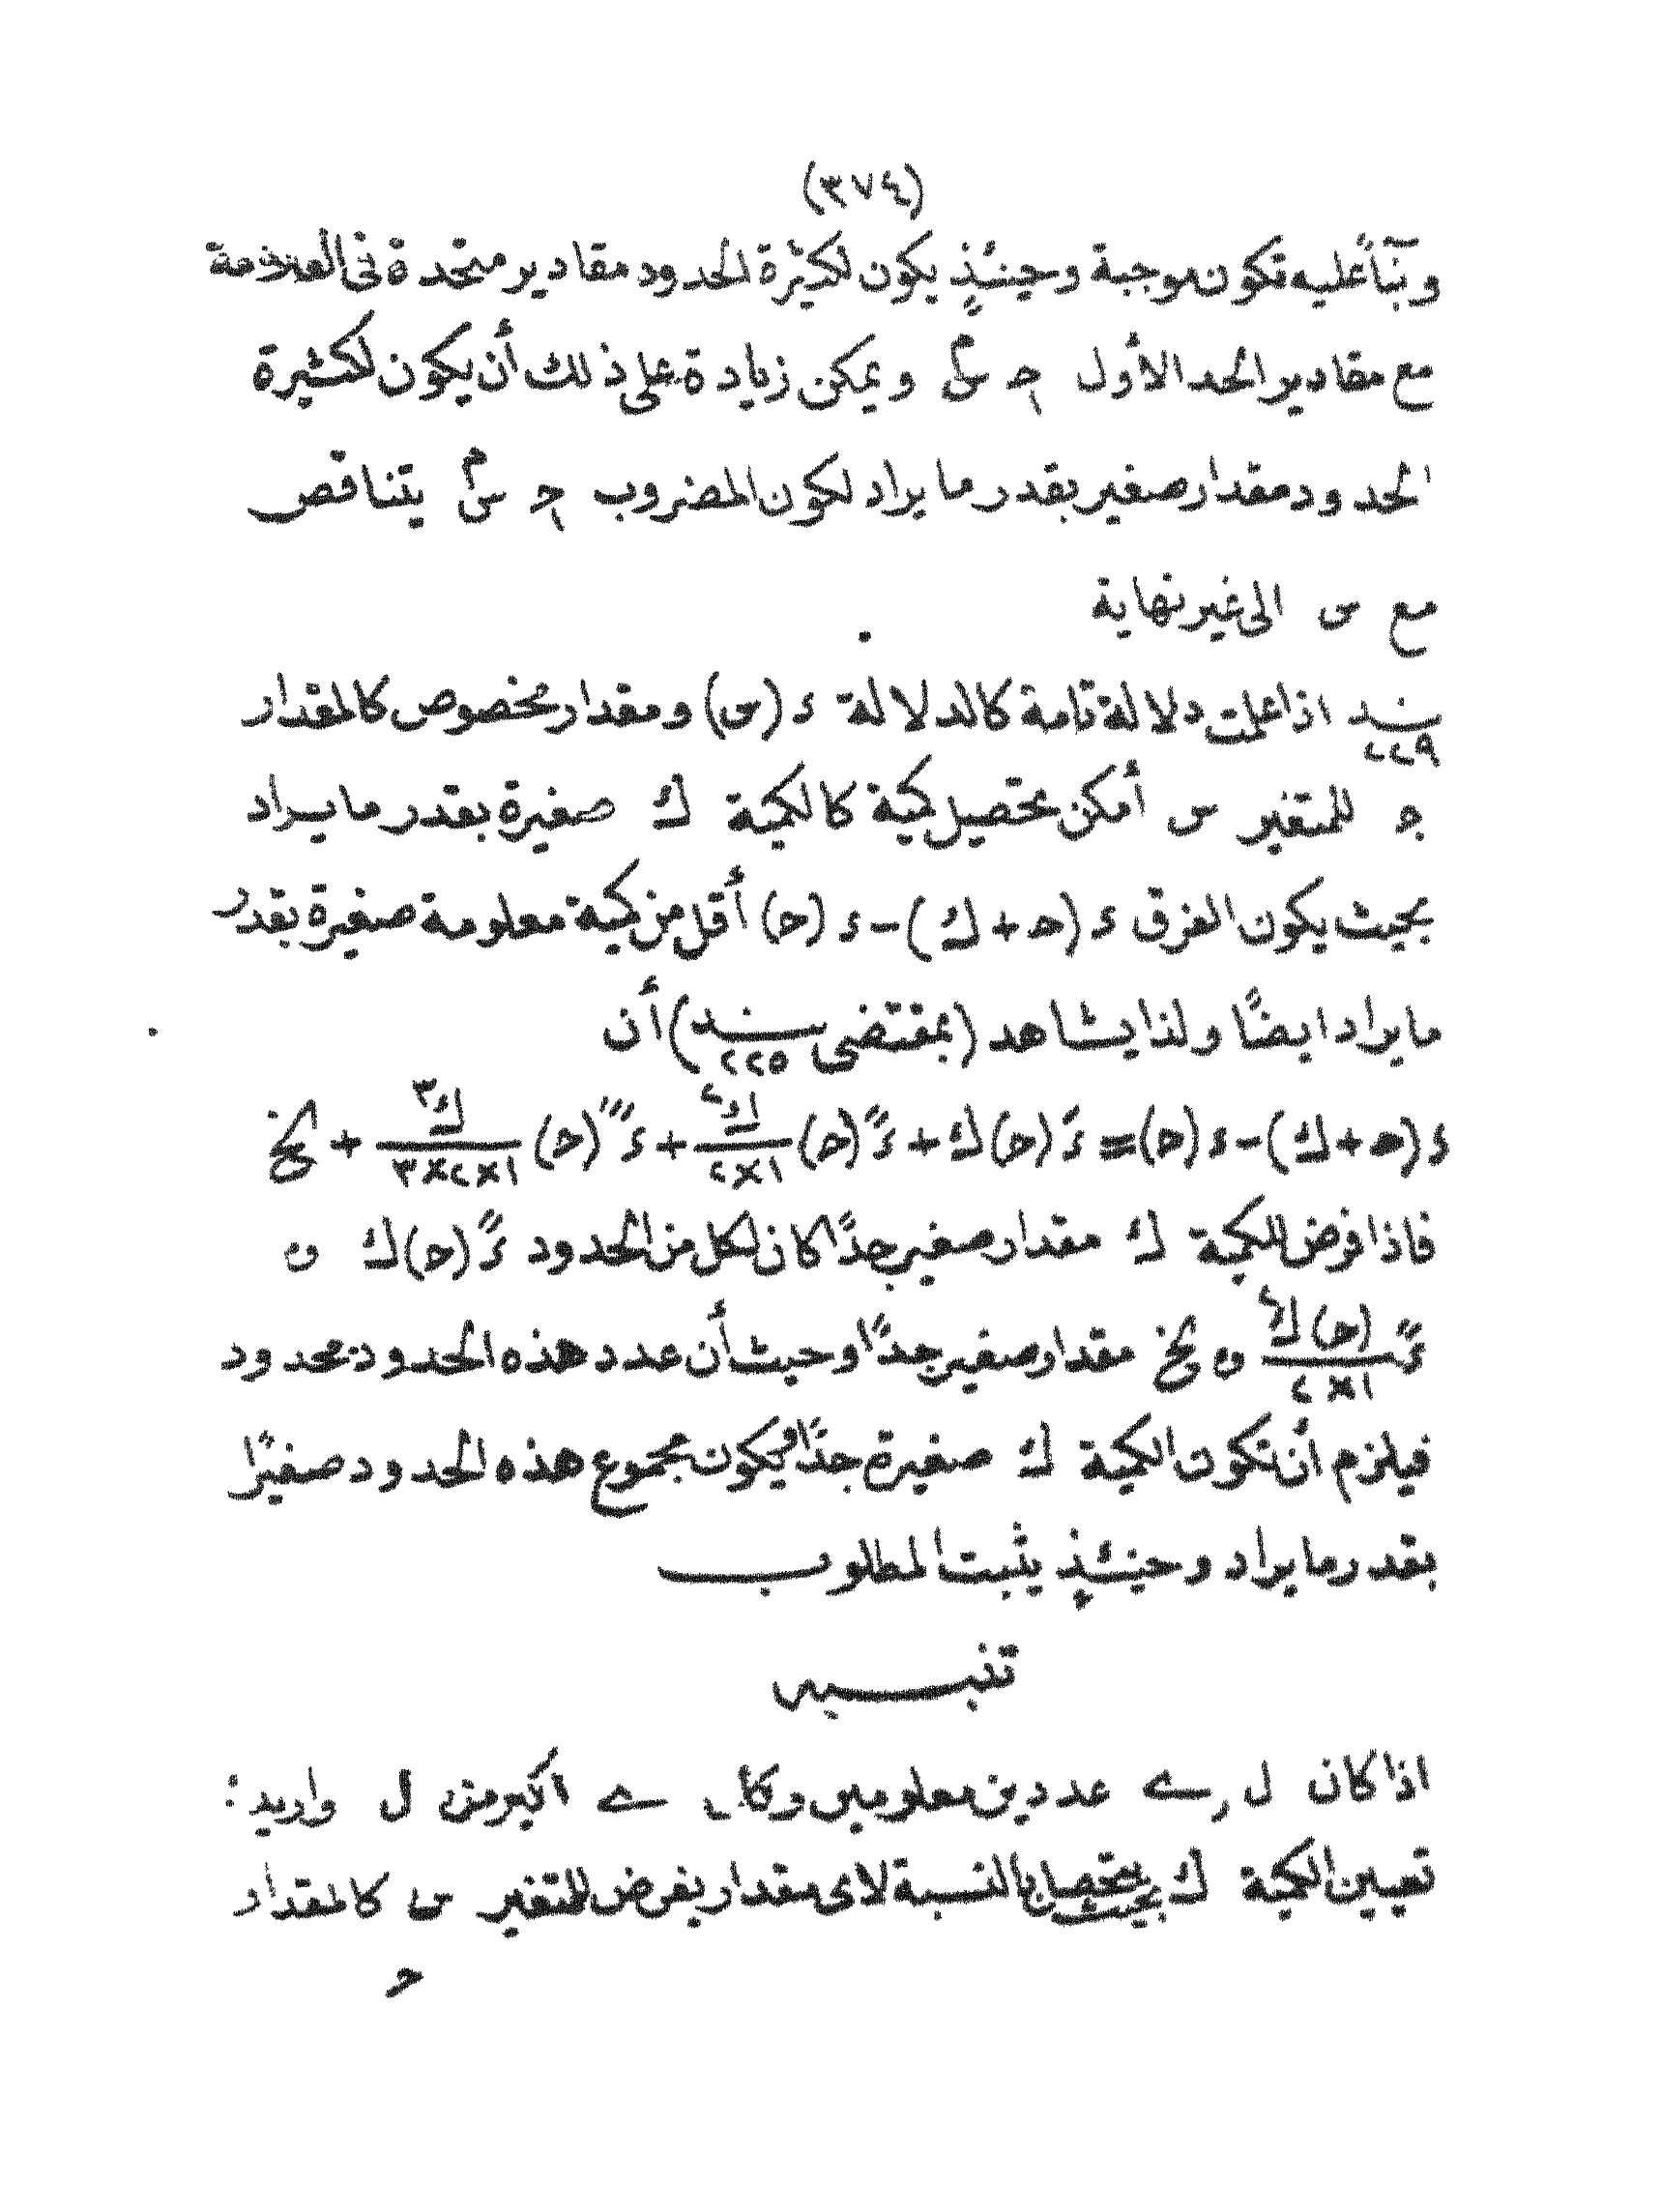 (٣٧٤)
وبنآءً عليه تكون موجبة وحينئذٍ يكون لكثيرة الحدود مقادير متحدة فى العلامة
مع مقادير الحد الأول حـ١ سم ويمكن زيادة على ذلك أن يكون لكثيرة
الحدود مقدار صغير بقدر ما يراد لكون المضروب حـ١ سم يتناقص
مع س الى غير نهاية
بند ٢٢٩ اذا علمت دلالة تامة كالدلالة د (س) ومقدار مخصوص كالمقدار
حـ للمتغير س أمكن تحصيل كمية كالكمية ك صغيرة بقدر ما يراد
بحيث يكون الفرق د (حـ + ك) - د (حـ) أقل من كمية معلومة صغيرة بقدر
ما يراد ايضًا ولذا يشاهد (بمقتضى بند ٢٢٥) أن
د (حـ + ك) - د (حـ) = دَ (حـ) ك + دً (حـ) ك٢/١×٢ + د‴ (حـ) ك٣/١×٢×٣ + الخ
فاذا فرض للكمية ك مقدار صغير جدًا كان لكل من الحدود دً (حـ) ك و
دً (حـ) ك٢/١×٢ و الخ مقدار صغير جدًا وحيث أن عدد هذه الحدود محدود
فيلزم أن تكون الكمية ك صغيرة جدًا ويكون مجموع هذه الحدود صغيرًا
بقدر ما يراد وحينئذٍ يثبت المطلوب
تنبيه
اذا كان ل ر ے عددين معلومين وكان ے اكبر من ل واريد
تعيين الكمية ك بحيث يتحصل بالنسبة لاى مقدار يفرض للمتغير س كالمقدار
حـ